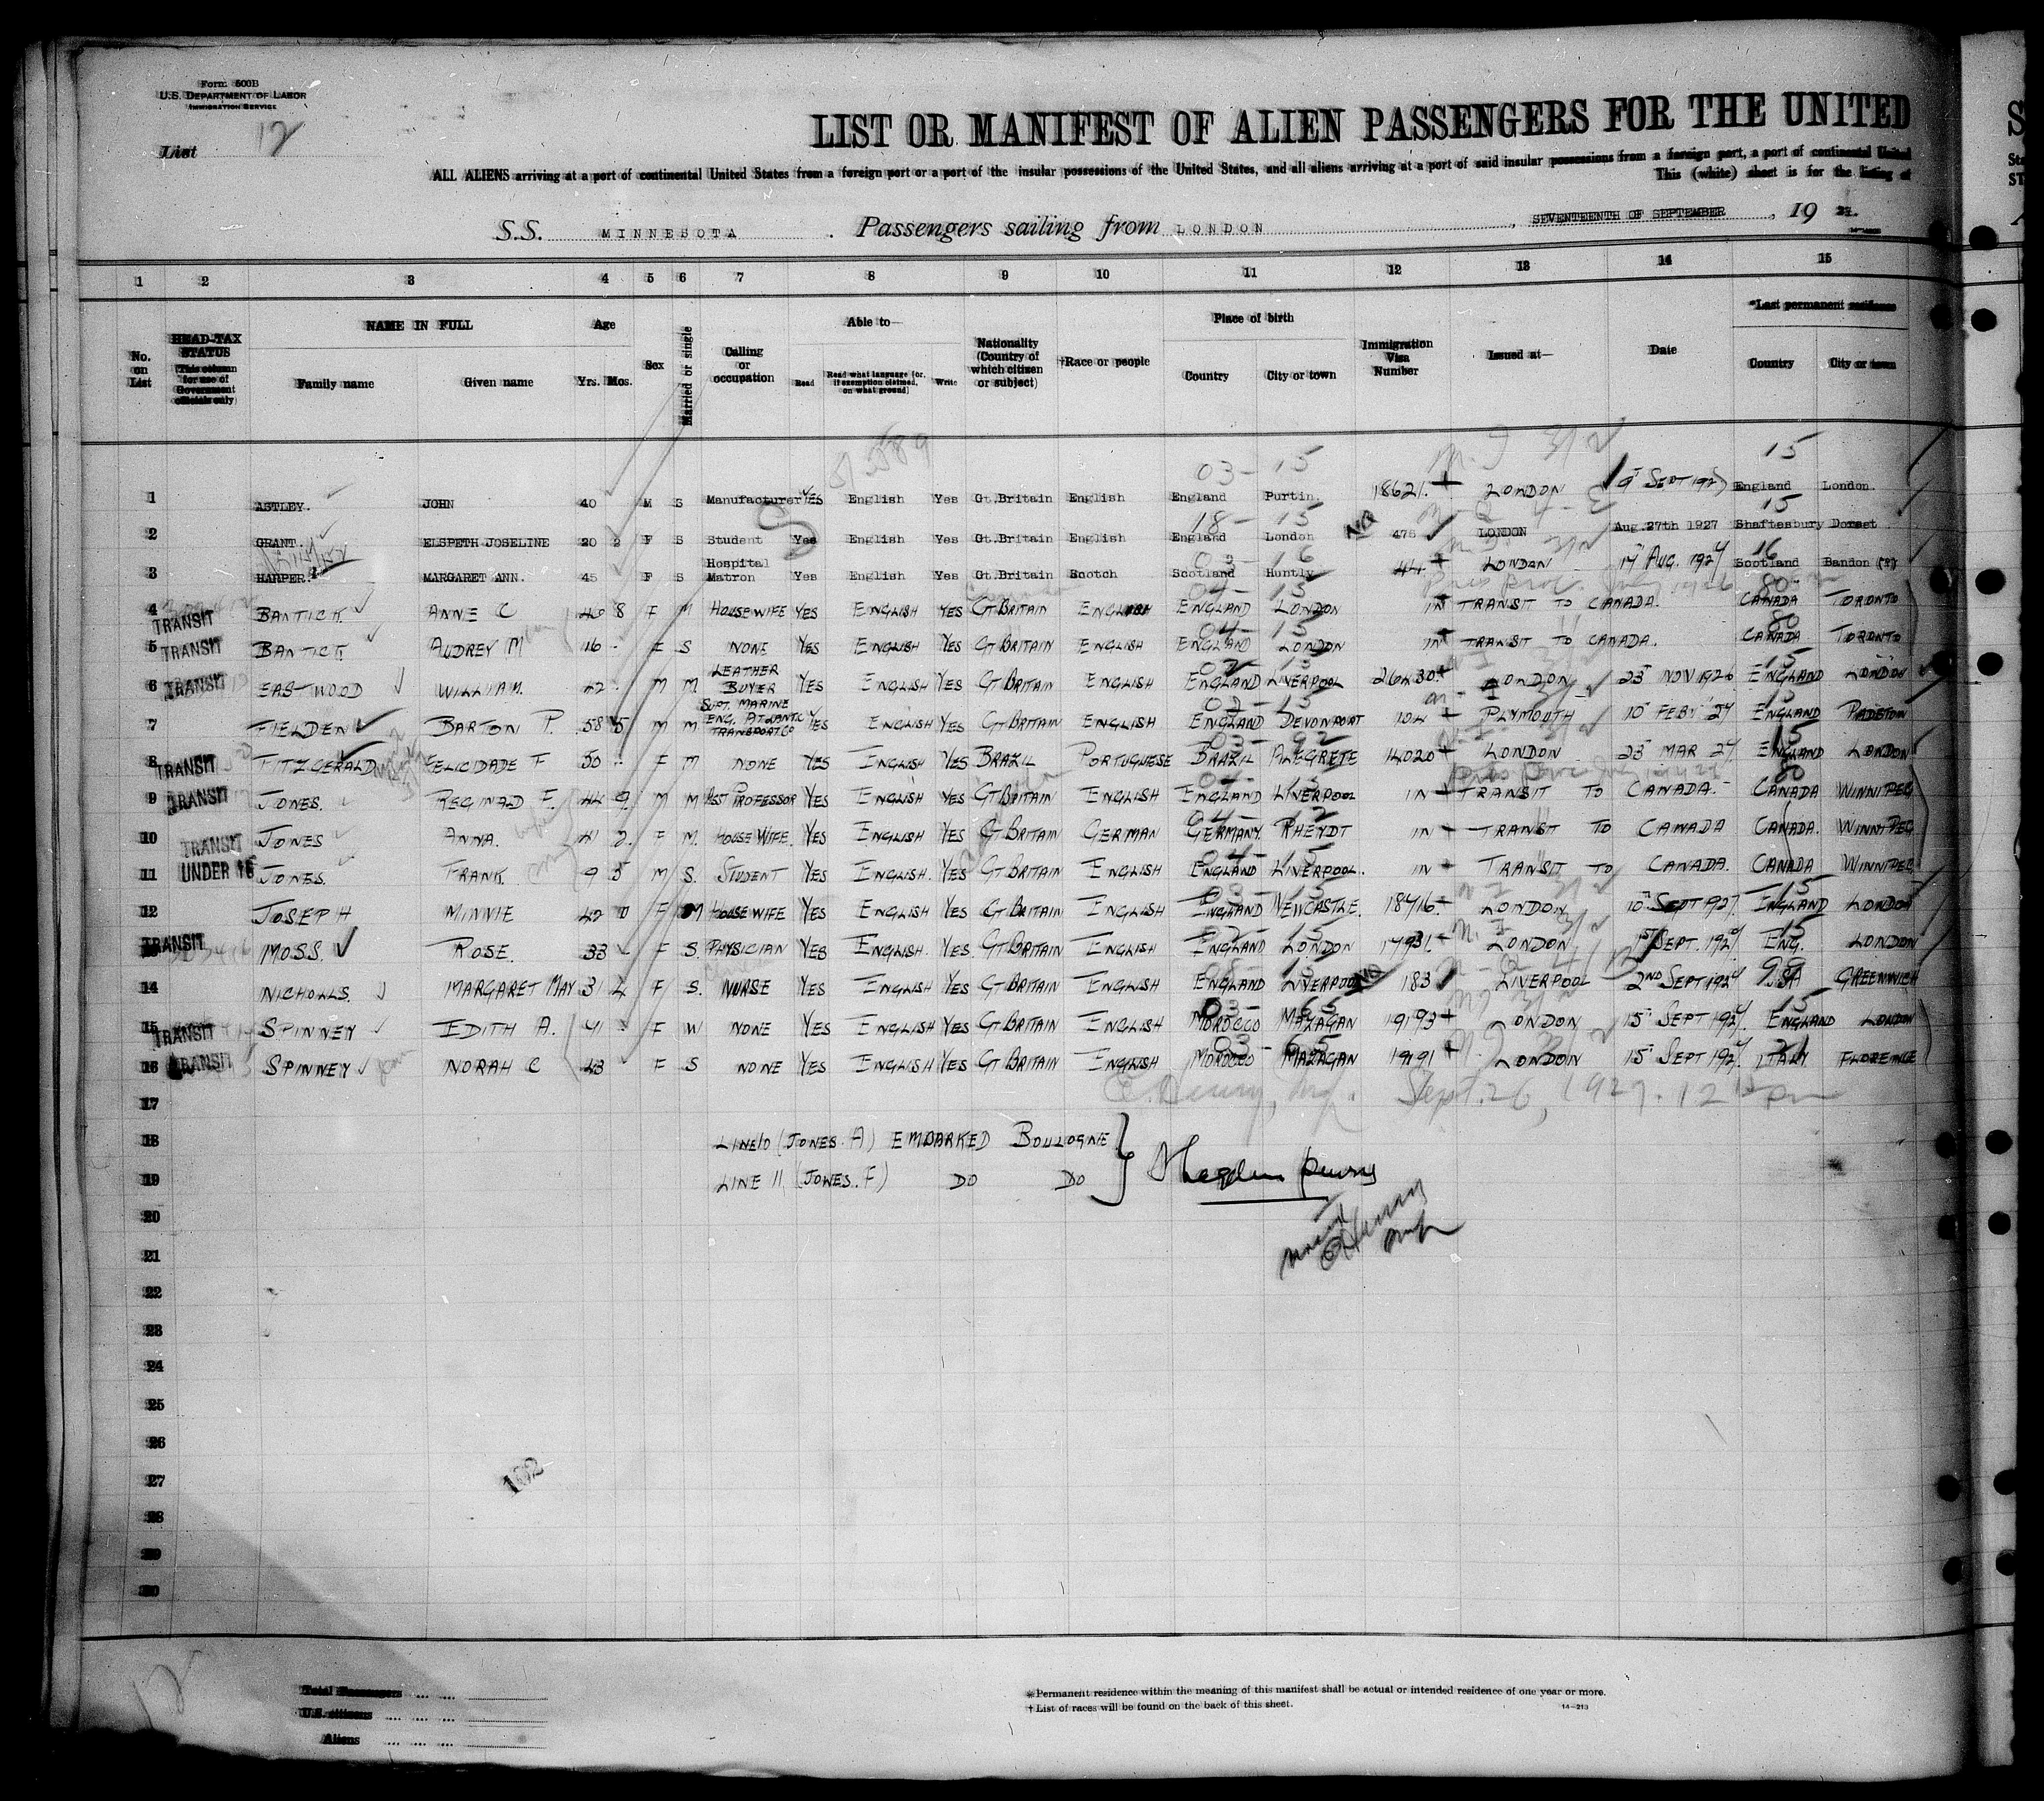 Form 500B
U.S. DEPARTMENT OF LABOR
IMMIGRATION SERVICE
List 12
LIST OR MANIFEST OF ALIEN PASSENGERS FOR THE UNITED
ALL ALIENS arriving at a port of continental United States from a foreign port or a port of the insular possessions of the United States, and all aliens arriving at a port of said insular possessions from a foreign port, a port of continental United
This (white) sheet is for the listing of
S.S. MINNESOTA. Passengers sailing from LONDON, SEVENTEENTH OF SEPTEMBER, 19 27.
1 2 3 4 5 6 7 8 9 10 11 12 13 14 15
No. on List
HEAD-TAX STATUS (This column for use of Government officials only)
NAME IN FULL
Family name Given name
Age
Yrs. Mos.
Sex
Married or single
Calling or occupation
Able to—
Read Read what language (or, if exemption claimed, on what ground) Write
Nationality (Country of which citizen or subject)
†Race or people
Place of birth
Country City or town
Immigration Visa Number
Issued at—
Date
*Last permanent residence
Country City or town
03- 15 15
1 ASTLEY. JOHN 40 M S Manufacturer YES English Yes Gt.Britain English England Purtin. 18621. LONDON 9 SEPT 1927 England London.
18- 15 15
2 GRANT. ELSPETH JOSELINE 20 2 F S Student Yes English Yes Gt.Britain English England London NQ 475 LONDON Aug.27th 1927 Shaftesbury Dorset
03- 16 16
3 HARPER. MARGARET ANN. 45 F S Hospital Matron Yes English Yes Gt.Britain Scotch Scotland Huntly 44 LONDON 17 AUG. 1927 Scotland Bandon (?)
4 TRANSIT BANTICK. ANNE C 40 8 F M HOUSEWIFE YES ENGLISH YES GT BRITAIN ENGLISH ENGLAND LONDON IN TRANSIT TO CANADA. CANADA TORONTO
04- 15 80
5 TRANSIT BANTICK AUDREY M 16 - F S NONE YES ENGLISH YES GT BRITAIN ENGLISH ENGLAND LONDON IN TRANSIT TO CANADA. CANADA TORONTO
6 TRANSIT EASTWOOD WILLIAM. 42 - M M LEATHER BUYER YES ENGLISH YES GT BRITAIN ENGLISH ENGLAND LIVERPOOL 26430 LONDON 23 NOV 1926 ENGLAND LONDON
7 FIELDEN BARTON P. 58 5 M M SUPT. MARINE ENG. ATLANTIC TRANSPORT CO YES ENGLISH YES GT BRITAIN ENGLISH ENGLAND DEVONPORT 104 PLYMOUTH 10 FEBY 27 ENGLAND PADSTOW
03- 92 15
8 TRANSIT FITZGERALD FELICIDADE F 50 - F M NONE YES ENGLISH YES BRAZIL PORTUGUESE BRAZIL ALEGRETE 14020 LONDON 23 MAR 27 ENGLAND LONDON
04- 15 80
9 TRANSIT JONES. REGINALD F. 44 9 M M ASST PROFESSOR YES ENGLISH YES GT BRITAIN ENGLISH ENGLAND LIVERPOOL IN TRANSIT TO CANADA. CANADA WINNIPEG
04- 12
10 TRANSIT JONES ANNA. wife 41 2 F M. HOUSE WIFE. YES ENGLISH YES GT BRITAIN GERMAN GERMANY RHEYDT IN TRANSIT TO CANADA CANADA. WINNIPEG
04- 15
11 UNDER 16 JONES. FRANK. 9 5 M S. STUDENT YES ENGLISH. YES GT BRITAIN ENGLISH ENGLAND LIVERPOOL. IN TRANSIT TO CANADA. CANADA WINNIPEG
12 JOSEPH MINNIE 42 0 F M HOUSEWIFE YES ENGLISH YES GT BRITAIN ENGLISH ENGLAND NEWCASTLE. 18416. LONDON 10 SEPT 1927. ENGLAND LONDON
13 TRANSIT MOSS. ROSE. 33 F S. PHYSICIAN YES ENGLISH. YES. GT BRITAIN ENGLISH ENGLAND LONDON 17931. LONDON 1ST SEPT. 1927 ENG. LONDON
14 NICHOLLS. MARGARET MAY 31 4 F S. NURSE YES ENGLISH YES GT BRITAIN ENGLISH ENGLAND LIVERPOOL NQ 183 LIVERPOOL 2ND SEPT 1927 USA GREENWICH
03- 65 15
15 TRANSIT SPINNEY EDITH A. 41 - F W NONE YES ENGLISH YES GT BRITAIN ENGLISH MOROCCO MAZAGAN 19193 LONDON 15 SEPT 1927. ENGLAND LONDON
03- 65 21
16 TRANSIT SPINNEY NORAH C 43 F S NONE YES ENGLISH YES GT BRITAIN ENGLISH MOROCCO MAZAGAN 19191 LONDON 15 SEPT 1927. ITALY FLORENCE
17 Sept. 26, 1927.
18 LINE 10 (JONES. A) EMBARKED BOULOGNE
19 LINE 11 (JONES. F) DO DO
20
21
22
23
24
25
26
27
102
28
29
30
12
Total Passengers
U.S. citizens
Aliens
*Permanent residence within the meaning of this manifest shall be actual or intended residence of one year or more.
†List of races will be found on the back of this sheet. 14—213